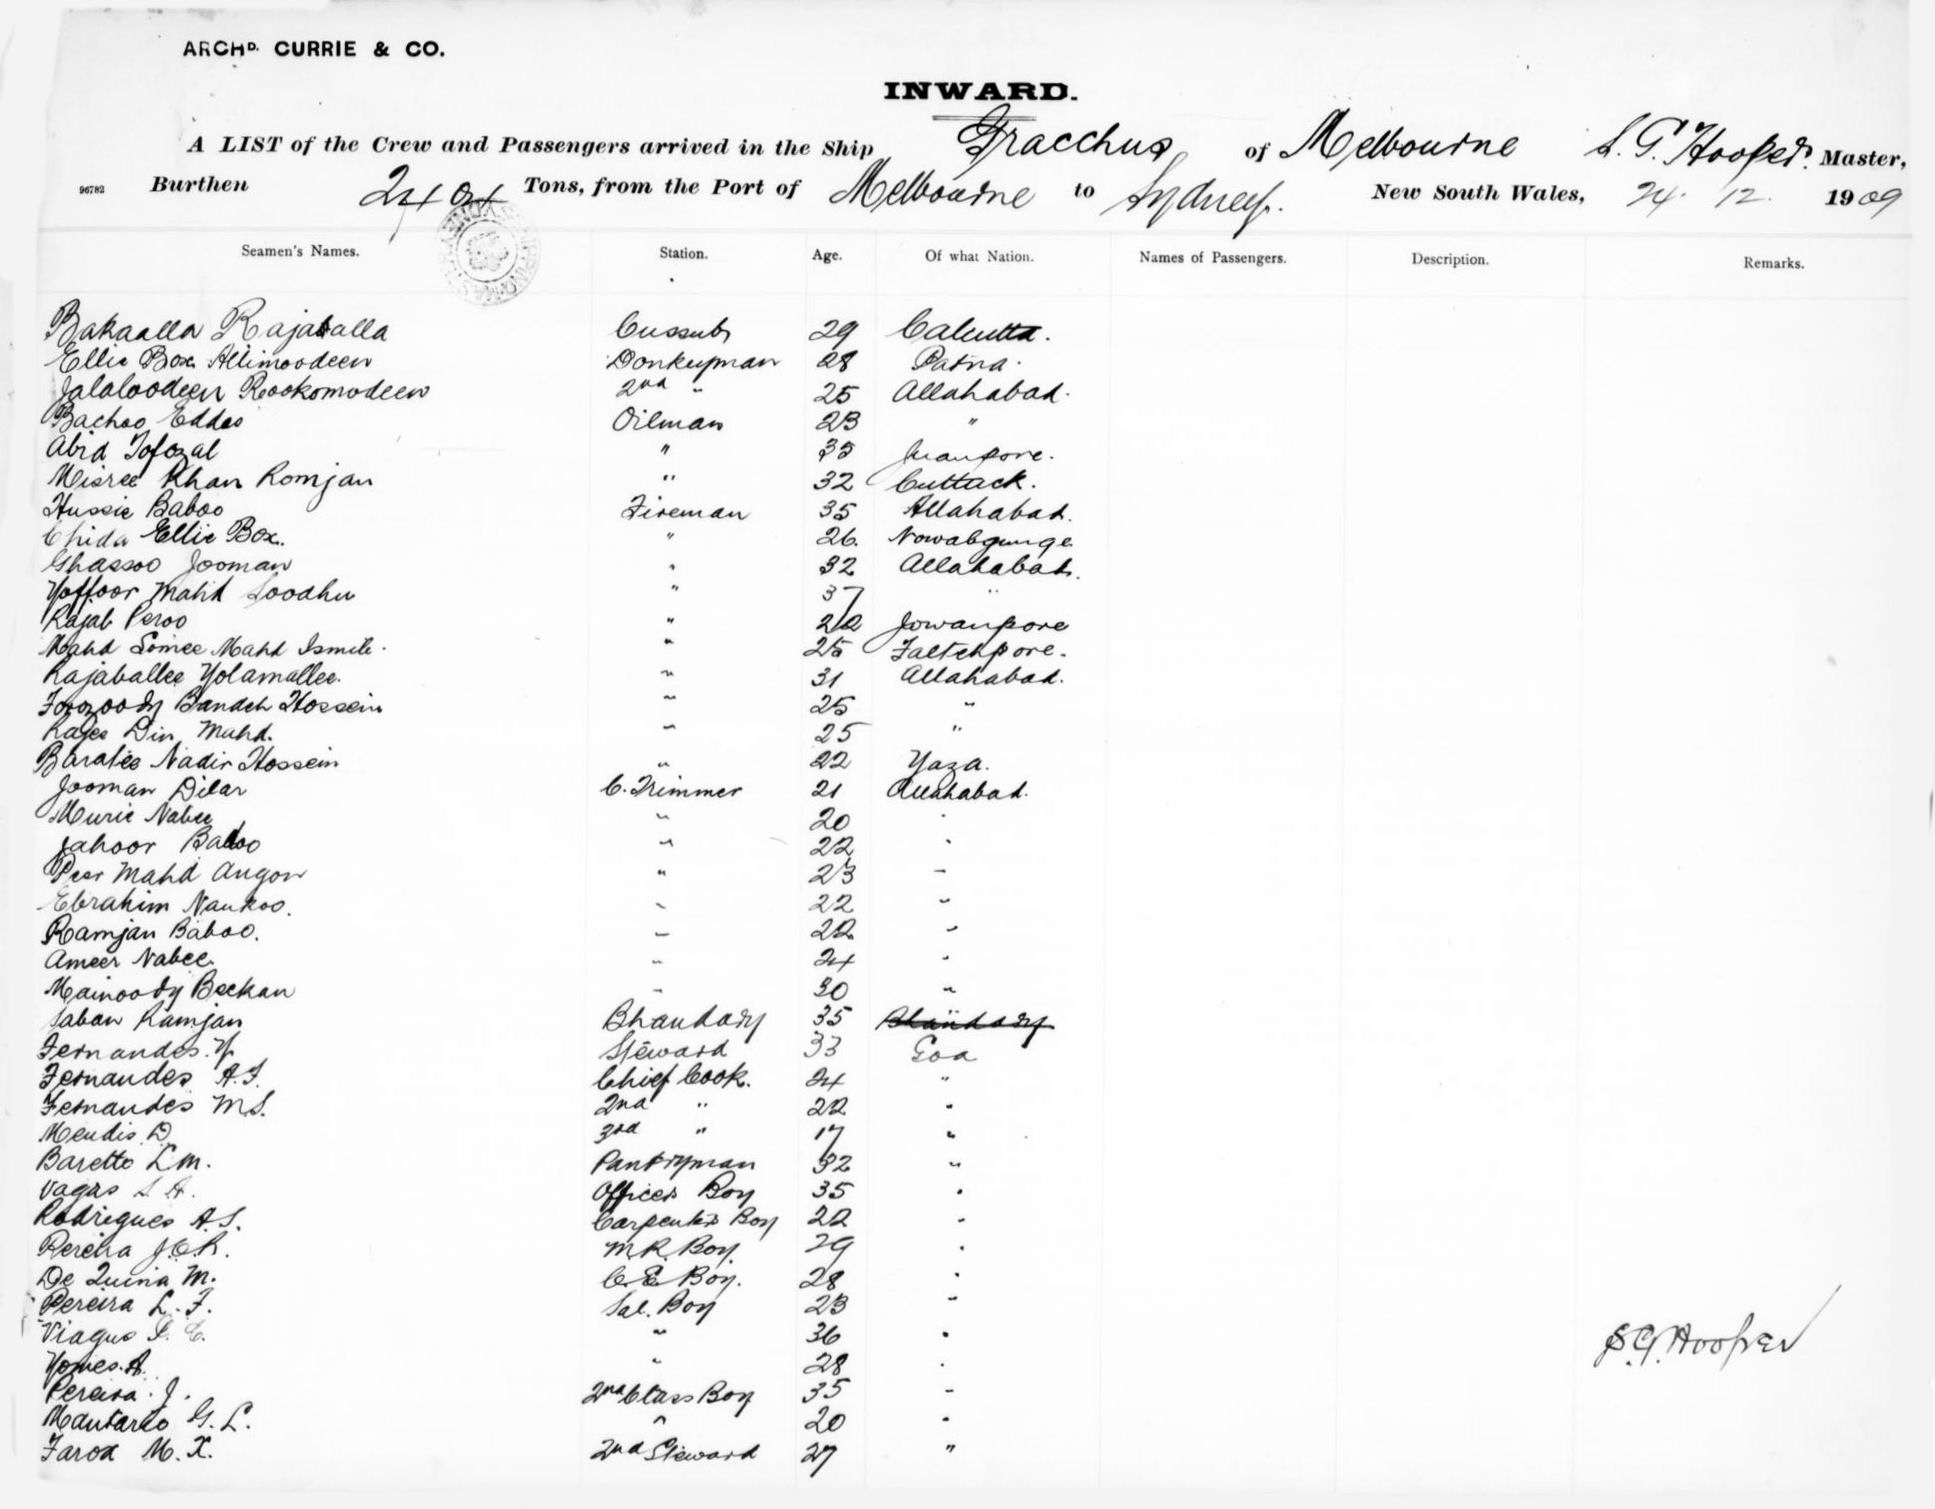 ARCHD. CURRIE & CO.
INWARD.
A LIST of the Crew and Passengers arrived in the Ship Gracchus of Melbourne S. G. Hooper Master,
96782 Burthen Tons, from the Port of Melbourne to Sydney. New South Wales, 24. 12. 1909
Seamen's Names. Station. Age. Of what Nation. Names of Passengers. Description. Remarks.
Bakaalla Rajaballa Cussub 29 Calcutta.
Ellie Box Allimoodeen Donkeyman 28 Patna.
Jalaloodeen Rookomodeen 2nd " 25 Allahabad.
Bachoo Eddoo Oilman 23 "
Abid Tofozal " 35 Juanpore.
Misree Khan Romjan " 32 Cuttack.
Hussie Baboo Fireman 35 Allahabad.
Chida Ellie Box. " 26. Nowabgunge
Ghassoo Jooman " 32 Allahabad.
Goffoor Mahd Soodhu " 37 "
Rajab Peroo " 22 Jowanpore
Mahd Somee Mahd Ismile. " 25 Fattehpore.
Rajaballee Golamallee. " 31 Allahabad.
Bandeh Hossein " 25 "
Din Mahd. " 25 "
Baratee Nadir Hossein " 22 Gaza.
Jooman Dilar C. Trimmer 21 Allahabad.
Murie Nabee " 20 "
Jahoor Baboo " 22 "
Peer Mahd Augon " 23 "
Ebrahim Nankoo. " 22 "
Ramjan Baboo. " 22 "
Ameer Nabee. " 24 "
Mainoody Beckan " 30 "
Saban Ramjan Bhandary 35 Bhandary
Fernandes. G. Steward 33 Goa
Fernandes A.F. Chief Cook. 24 "
Fernandes M.S. 2nd " 22 "
Mendis. D. 3rd " 17 "
Baretto L.M. Pantryman 32 "
Vagas S. A. Officers Boy 35 "
Rodrigues A.S. Carpenters Boy 22 "
Pereira J.C.R. M.R. Boy 29 "
De Quina M. C.E. Boy. 28 "
Pereira L. F. Sal. Boy 23 "
Viagus " 36 "
Gomes. A. " 28 "
S.G. Hooper
Pereira. J. 2nd Class Boy 35 "
G. L. " 20 "
Faroa M. X. 2nd Steward 27 "